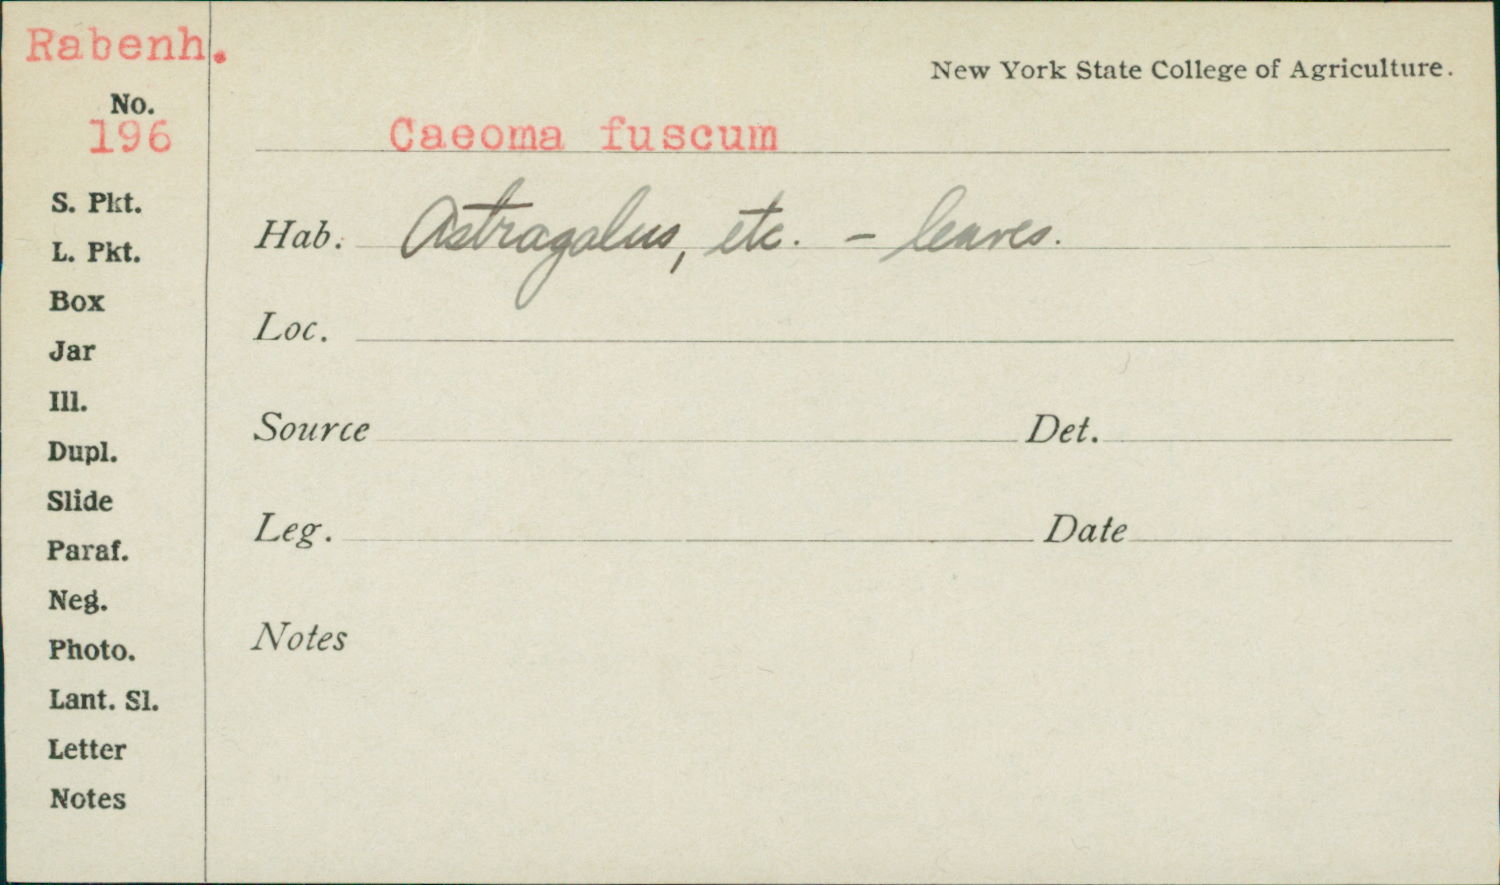 Rabenh.
New York State College of Agriculture.
No.
196
Caeoma fuscum
S. Pkt.
Hab. Astragalus, etc. - leaves.
L. Pkt.
Box
Loc.
Jar
Ill.
Source Det.
Dupl.
Slide
Leg. Date
Paraf.
Neg.
Notes
Photo.
Lant. Sl.
Letter
Notes